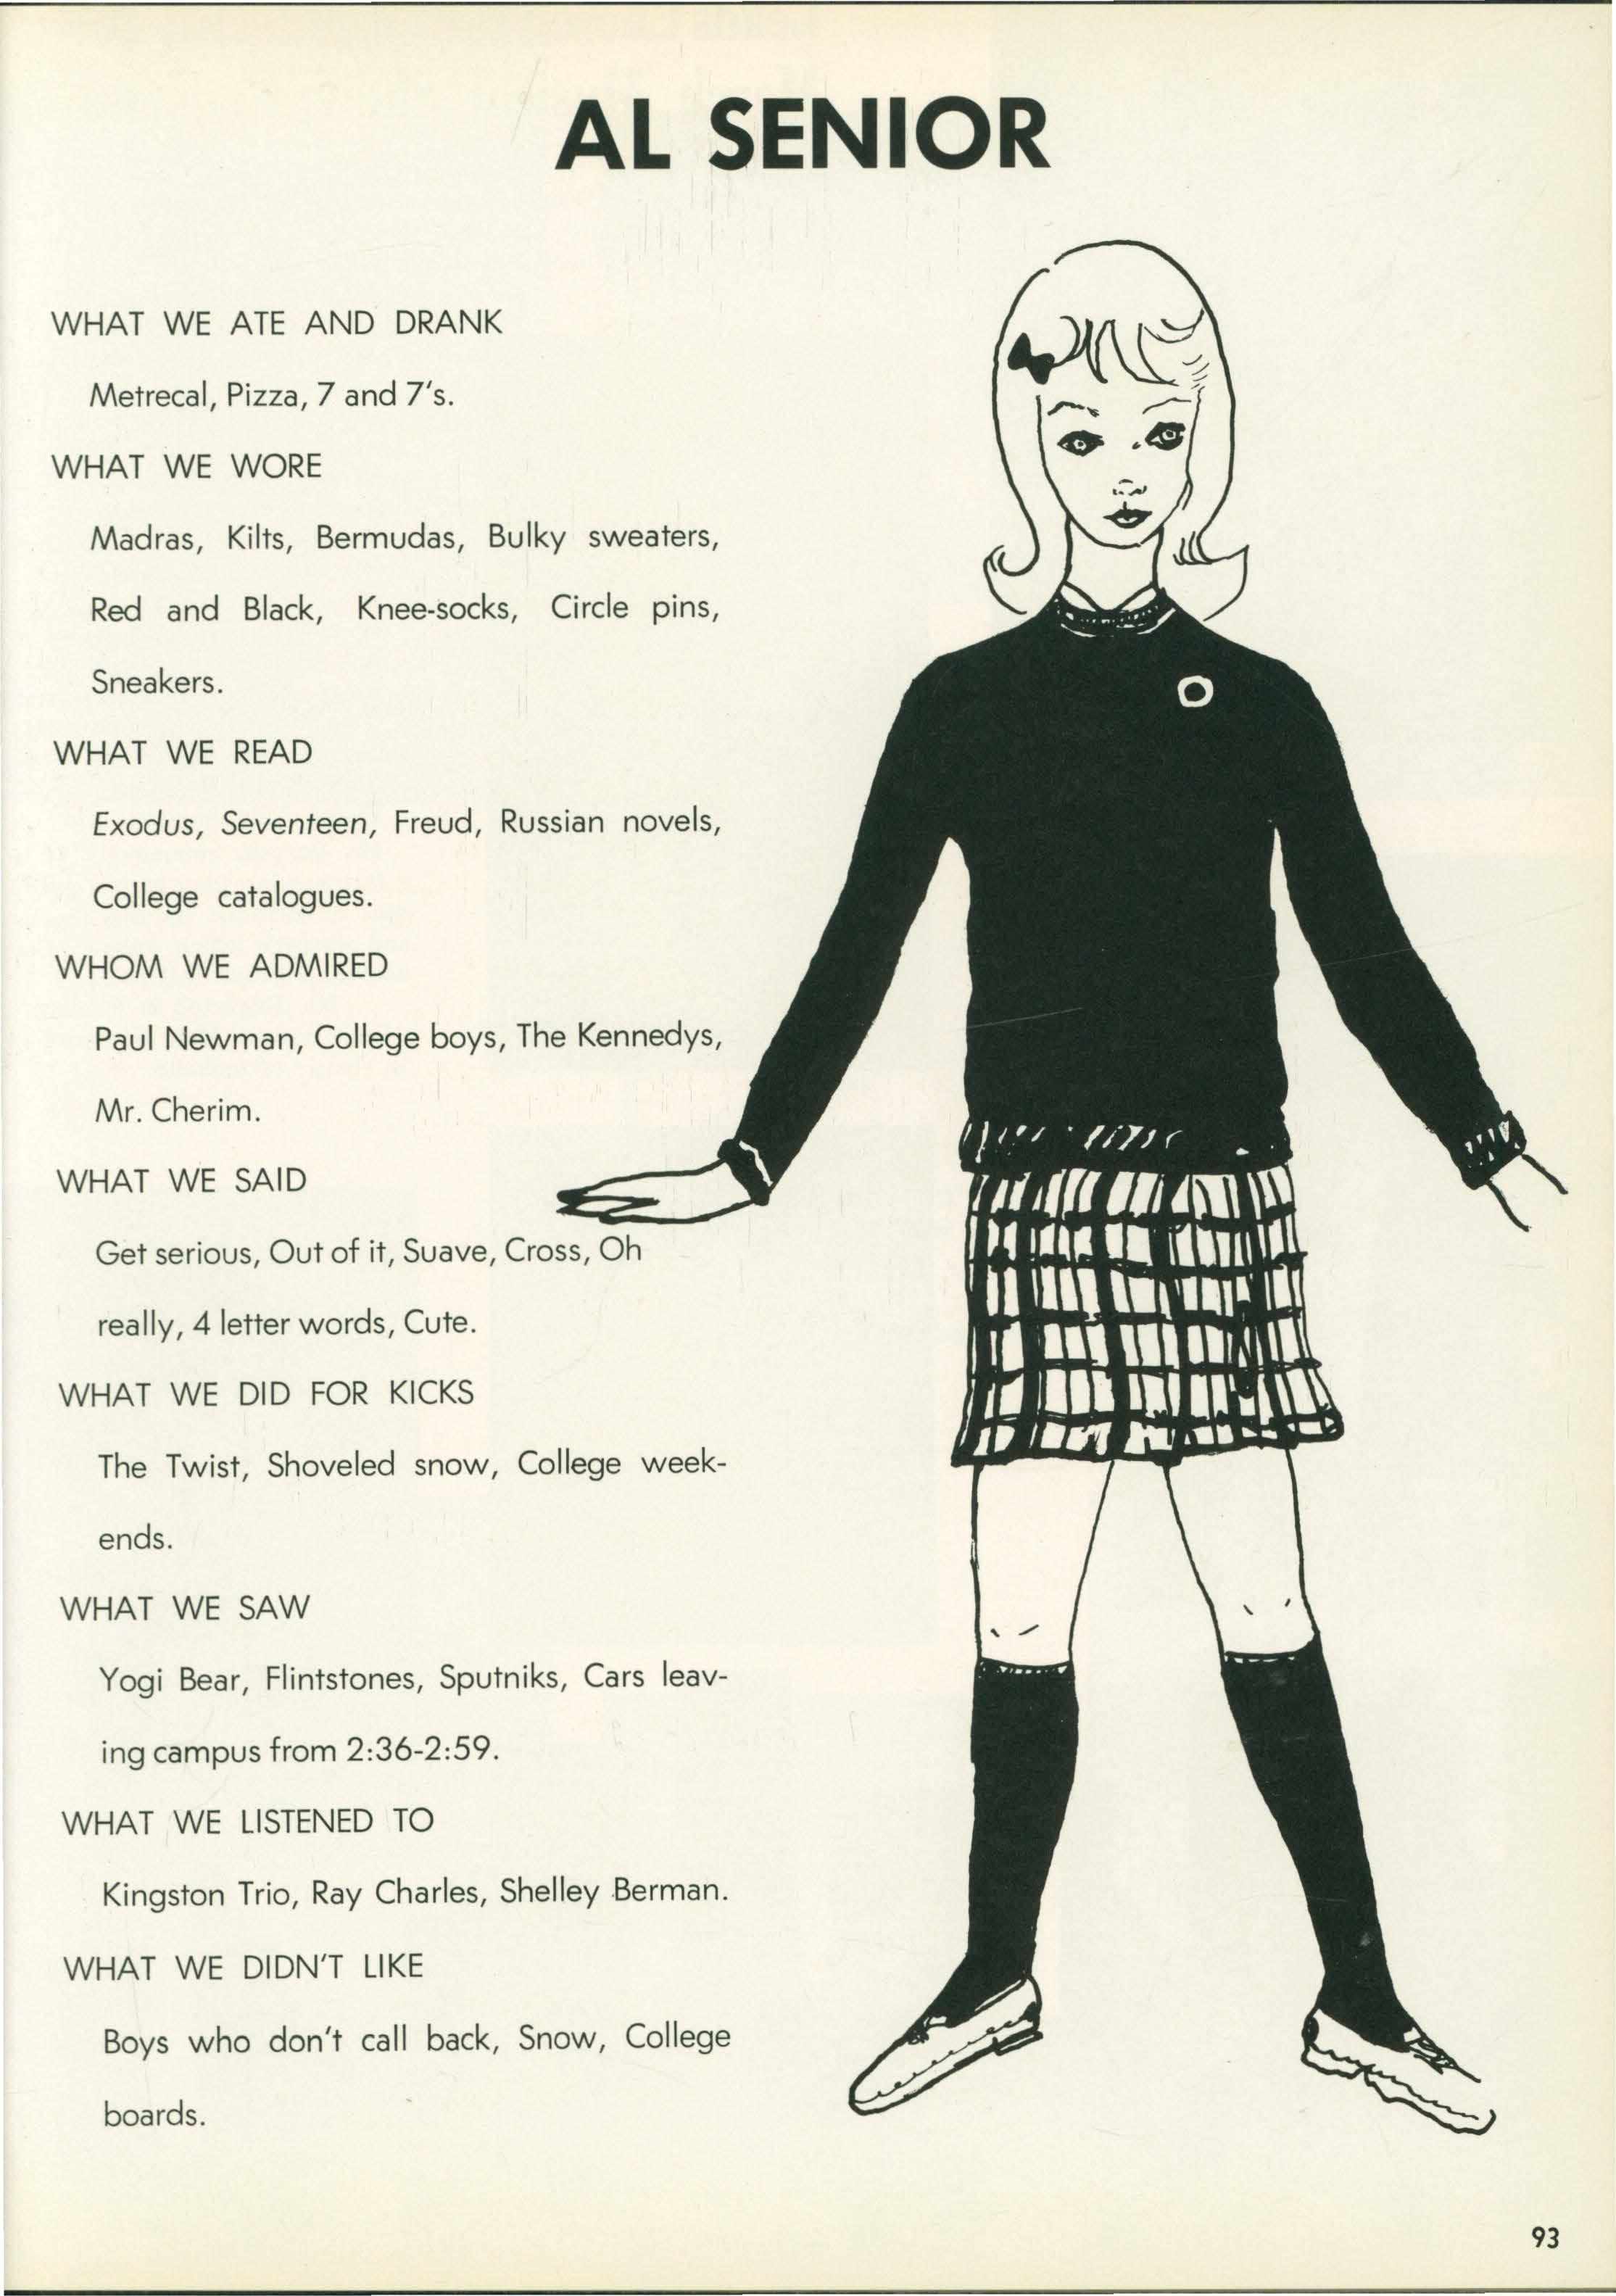 AL SENIOR
WHAT WE ATE AND DRANK
Metrecal, Pizza, 7 and 7's.
WHAT WE WORE
Madras, Kilts, Bermudas, Bulky sweaters,
Red and Black, Knee-socks, Circle pins,
Sneakers.
WHAT WE READ
Exodus, Seventeen, Freud, Russian novels,
College catalogues.
WHOM WE ADMIRED
Paul Newman, College boys, The Kennedys,
Mr. Cherim.
WHAT WE SAID
Get serious, Out of it, Suave, Cross, Oh
really, 4 letter words, Cute.
WHAT WE DID FOR KICKS
The Twist, Shoveled snow, College week-
ends.
WHAT WE SAW
Yogi Bear, Flintstones, Sputniks, Cars leav-
ing campus from 2:36-2:59.
WHAT WE LISTENED TO
Kingston Trio, Ray Charles, Shelley Berman.
WHAT WE DIDN'T LIKE
Boys who don't call back, Snow, College
boards.
93